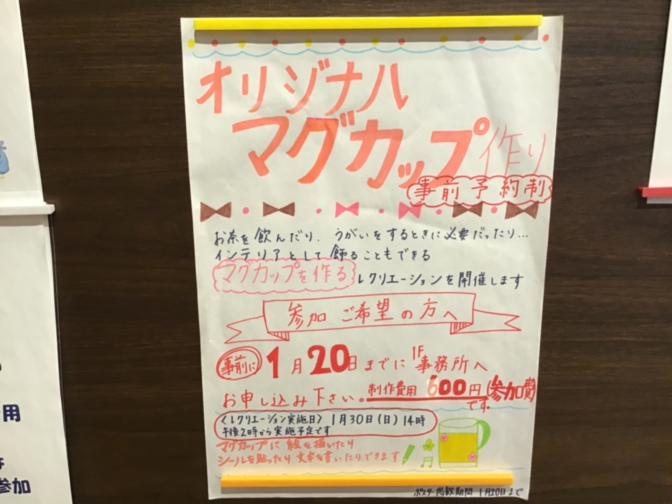 オリジナル
マグカップ作り
事前予約制
お茶を飲んだり、うがいをするときに必要だったり…
インテリアとして飾ることもできる
マグカップを作る レクリエーションを開催します
参加ご希望の方へ
事前に 1月20日までに 1F 事務所へ
お申し込み下さい。制作費用 600円(参加費)
です。
〈レクリエーション実施日〉1月30日(日)14時
午後2時から実施予定です
マグカップに絵を描いたり
シールを貼ったり文字を書いたりできます
ポスター掲載期間 1月20日まで
用
参加